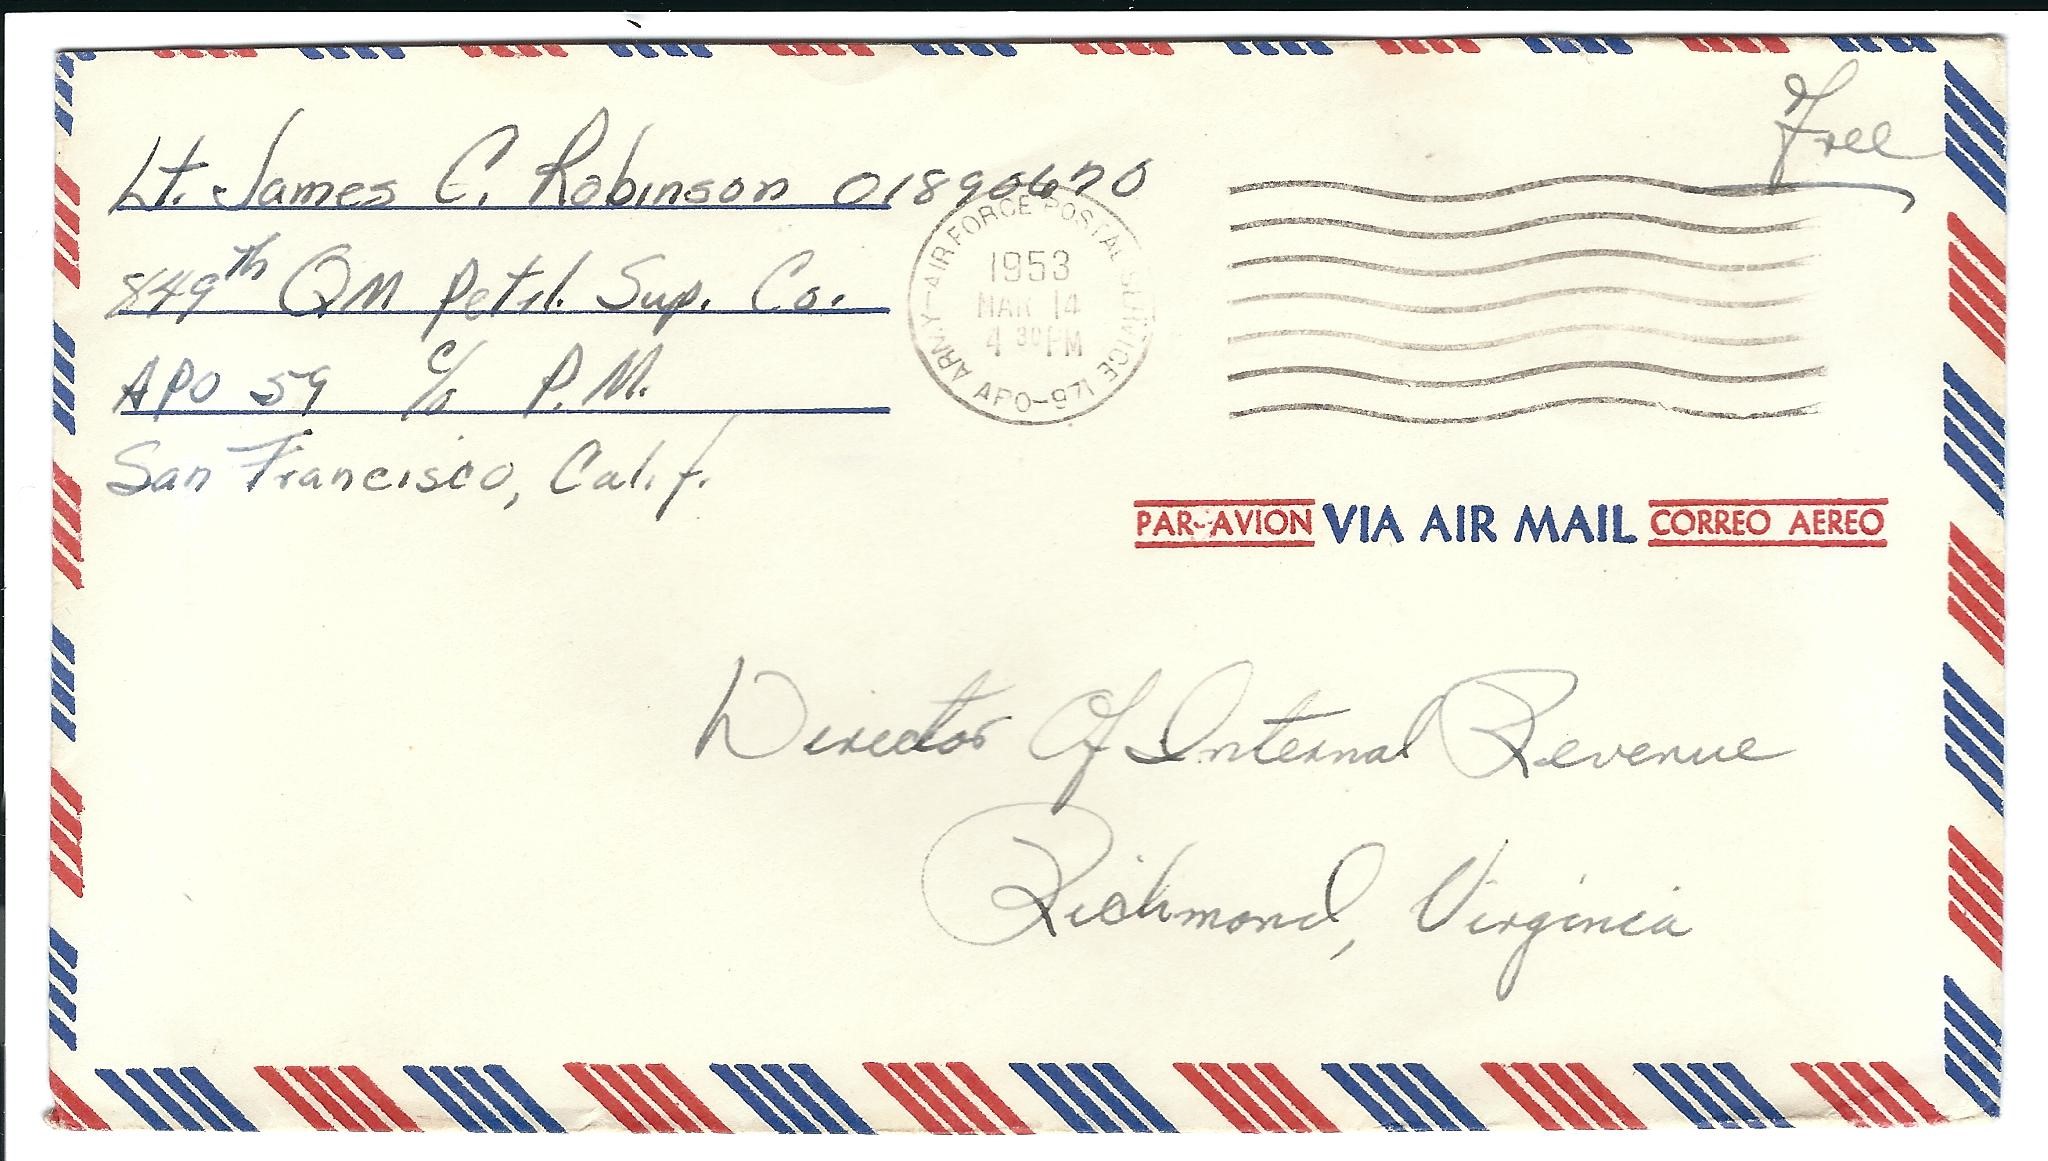 Free
Lt. James C. Robinson 01890670
849th QM Petrl. Sup. Co.
APO 59 c/o P.M.
San Francisco, Calif.
ARMY-AIR FORCE POSTAL SERVICE
1953
MAR 14
4 30 PM
APO-971
PAR AVION VIA AIR MAIL CORREO AEREO
Director Of Internal Revenue
Richmond, Virginia